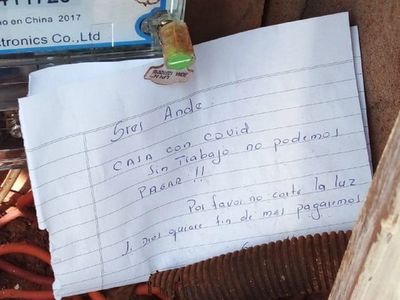 o en China 2017
ctronics Co.,Ltd
Sres Ande:
CASA con Covid
Sin Trabajo no podemos
PAGAR !!
Por favor no corte la luz
Dios quiere fin de mes pagaremos